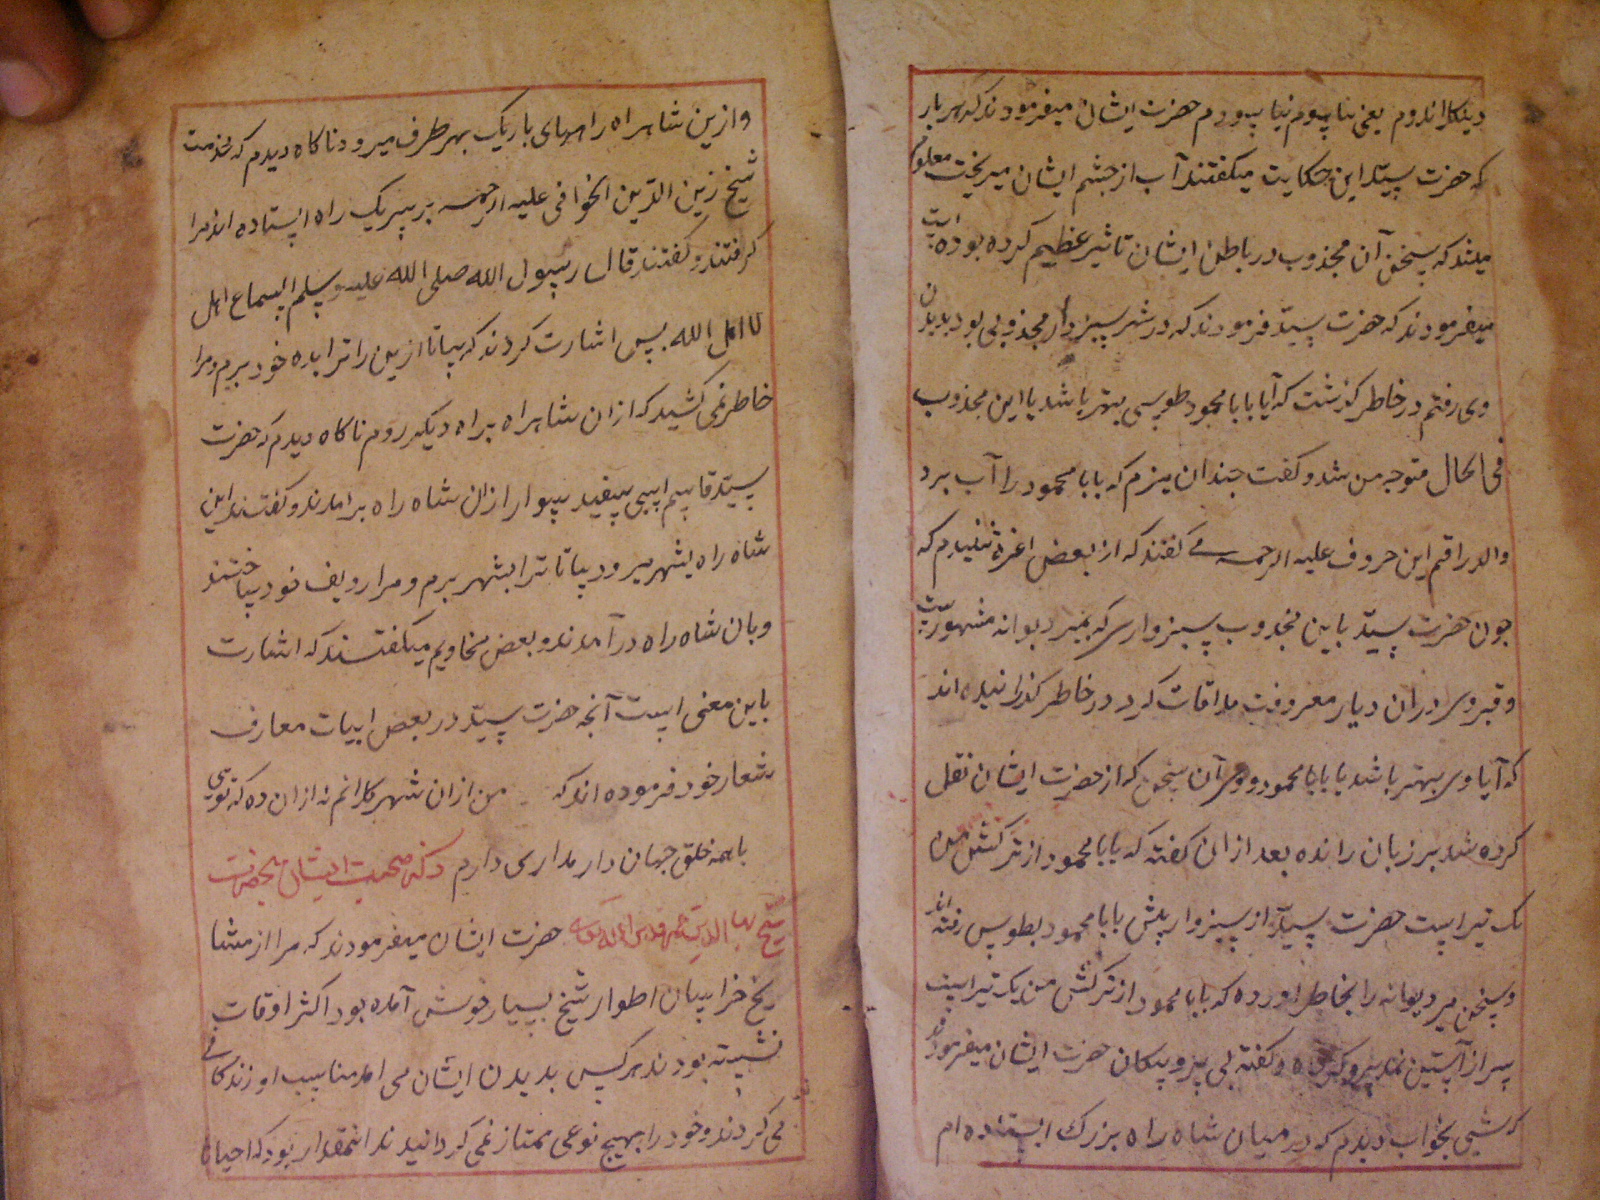 که حضرت سید این حکایت میگفتند آب از چشم ایشان میریخت معلوم
میشد که سخن آن مجذوب در باطن ایشان تاثیر عظیم کرده بوده است
میفرمودند که حضرت سید فرمودند که در شهر سبزوار مجذوبی بود بدیدن
وی رفتم در خاطر گذشت که آیا بابا محمود طوسی بهتر باشد یا این مجذوب
فی الحال متوجه من شد و گفت چندان میزم که بابا محمود را آب برد
والد راقم این حروف علیه الرحمه می گفتند که از بعض اعزه شنیدم که
چون حضرت سید باین مجذوب سبزواری که بمیر دیوانه مشهورست
و قبر وی در آن دیار معروفست ملاقات کرد در خاطر گذرانیده اند
که آیا وی بهتر باشد یا بابا محمود و وی آن سخن که از حضرت ایشان نقل
کرده شد بر زبان رانده بعد از آن گفته که بابا محمود از ترکش من
یک تیر است حضرت سید از سبزوار پیش بابا محمود بطوس رفته اند
و سخن میر دیوانه را بخاطر آورده که بابا محمود از ترکش من یک تیر است
سر از آستین نمد و گفته بی پر و پیکان حضرت ایشان میفرمودند
که شبی بخواب دیدم که در میان شاه راه بزرگ ایستاده ام
و ازین شاهراه راههای باریک بهر طرف میرود ناگاه دیدم که خدمت
شیخ زین الدین الخوافی علیه الرحمه بر سر یک راه ایستاده اند مرا
گرفتند و گفتند قال رسول الله صلی الله علیه وسلم السماع اهل
لا اهل الله پس اشارت کردند که بیا تا ازین را ترا بده خود بریم و مرا
خاطر نمی کشید که از ان شاهراه براه دیگر روم ناگاه دیدم که حضرت
سید قاسم اسبی سفید سوار از ان شاه راه برآمدند و گفتند این
شاه راه بشهر میرود بیا تا ترا بشهر برم و مرا ردیف خود ساختند
و بان شاه راه درآمدند و بعض مخادیم میگفتند که اشارت
باین معنی است آنچه حضرت سید در بعض ابیات معارف
شعار خود فرموده اند که من از ان شهر کلانم نه از ان ده که توی
با همه خلق جهان دار مداری دارم ذکر صحبت ایشان بحضرت
شیخ بهاء الدین عمر قدس الله سره حضرت ایشان میفرمودند که مرا از مشا
یخ خراسان اطوار شیخ بسیار خوش آمده بود اکثر اوقات
نشسته بودند هر کس بدیدن ایشان می آمد مناسب او زندگانی
می کردند و خود را بهیچ نوعی ممتاز نمی گردانیدند اینمقدار بود که احیانا